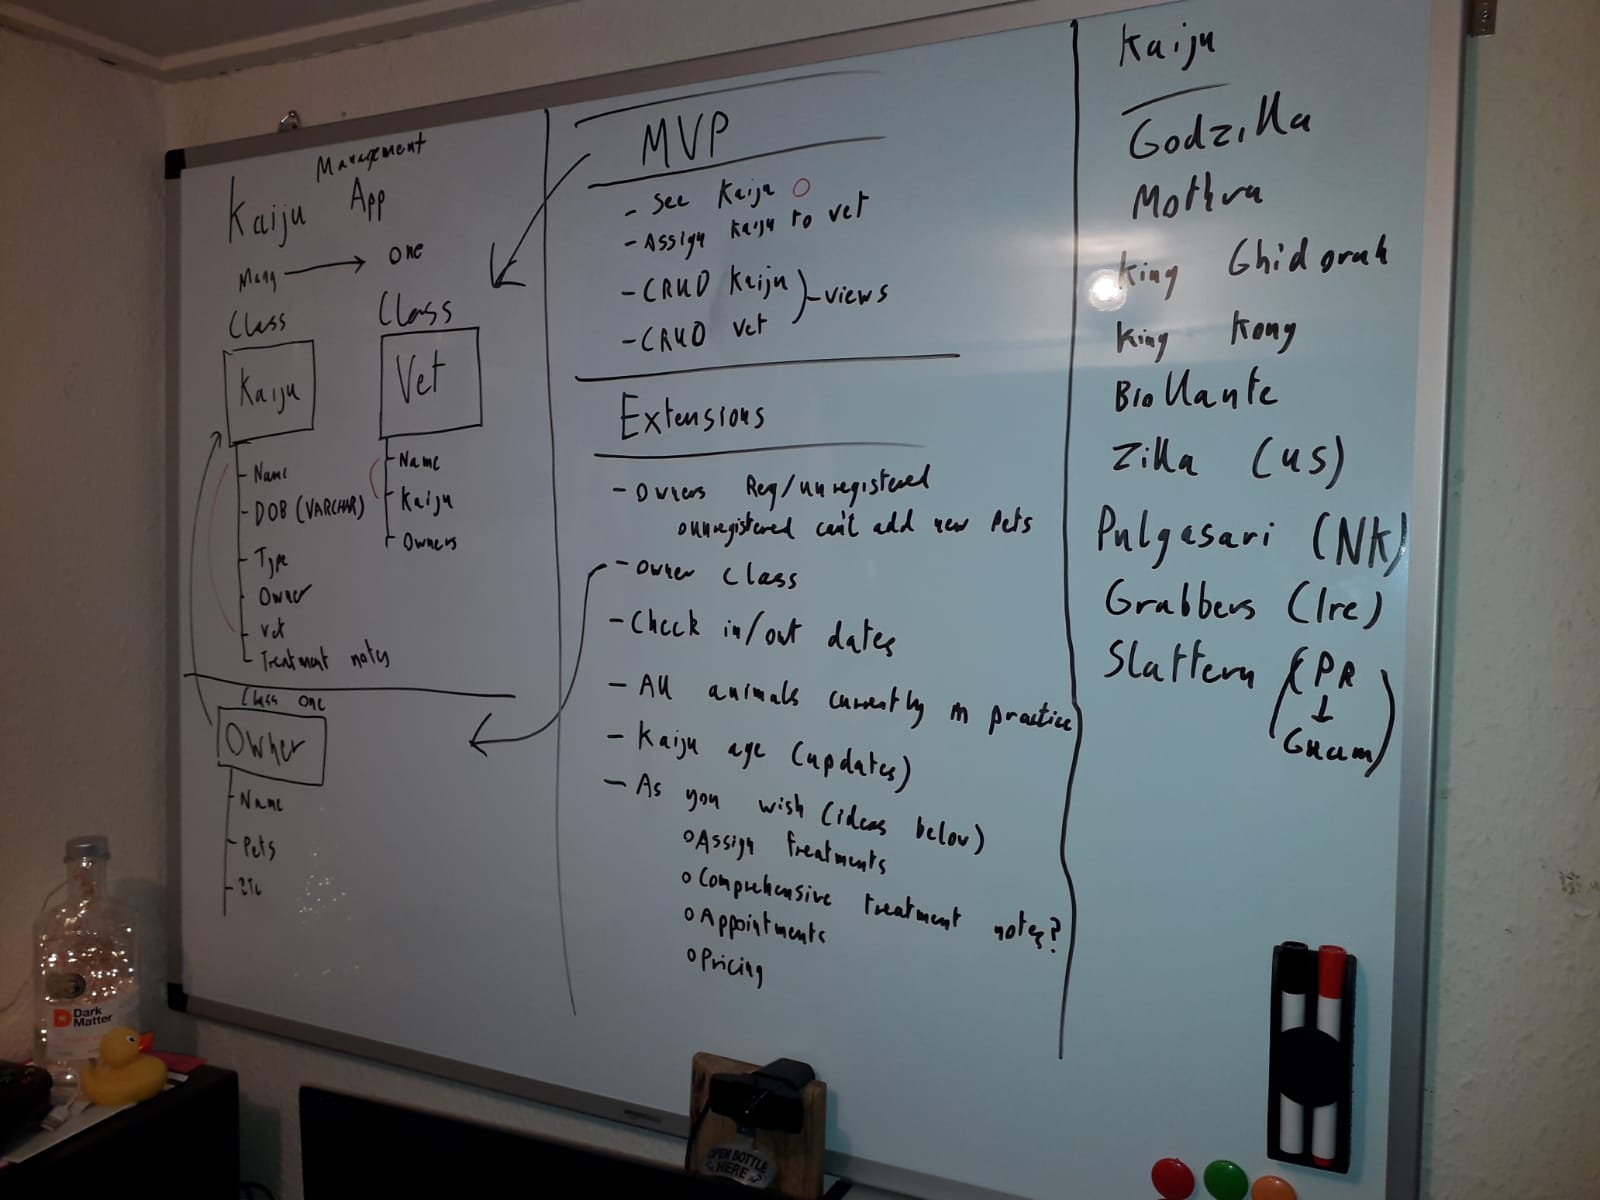 Management
Kaiju App
Many → one
Class
Kaiju
- Name
- DOB (VARCHAR)
- Type
- Owner
- vet
- Treatment notes
Class
Vet
- Name
- Kaiju
- Owners
Class one
Owner
- Name
- Pets
- etc
MVP
- See Kaiju
- Assign Kaiju to vet
- CRUD Kaiju
- CRUD vet
views
Extensions
- Owners Reg/unregistered
unregistered can't add new pets
- owner class
- Check in/out dates
- All animals currently in practice
- Kaiju age (updates)
- As you wish (ideas below)
o Assign treatments
o Comprehensive treatment notes?
o Appointments
o Pricing
Kaiju
Godzilla
Mothra
King Ghidorah
King Kong
Biollante
Zilla (US)
Pulgasari (NK)
Grabbers (Ire)
Slattern (PR
↓
Guam)
Dark
Matter
OPEN BOTTLE
HERE